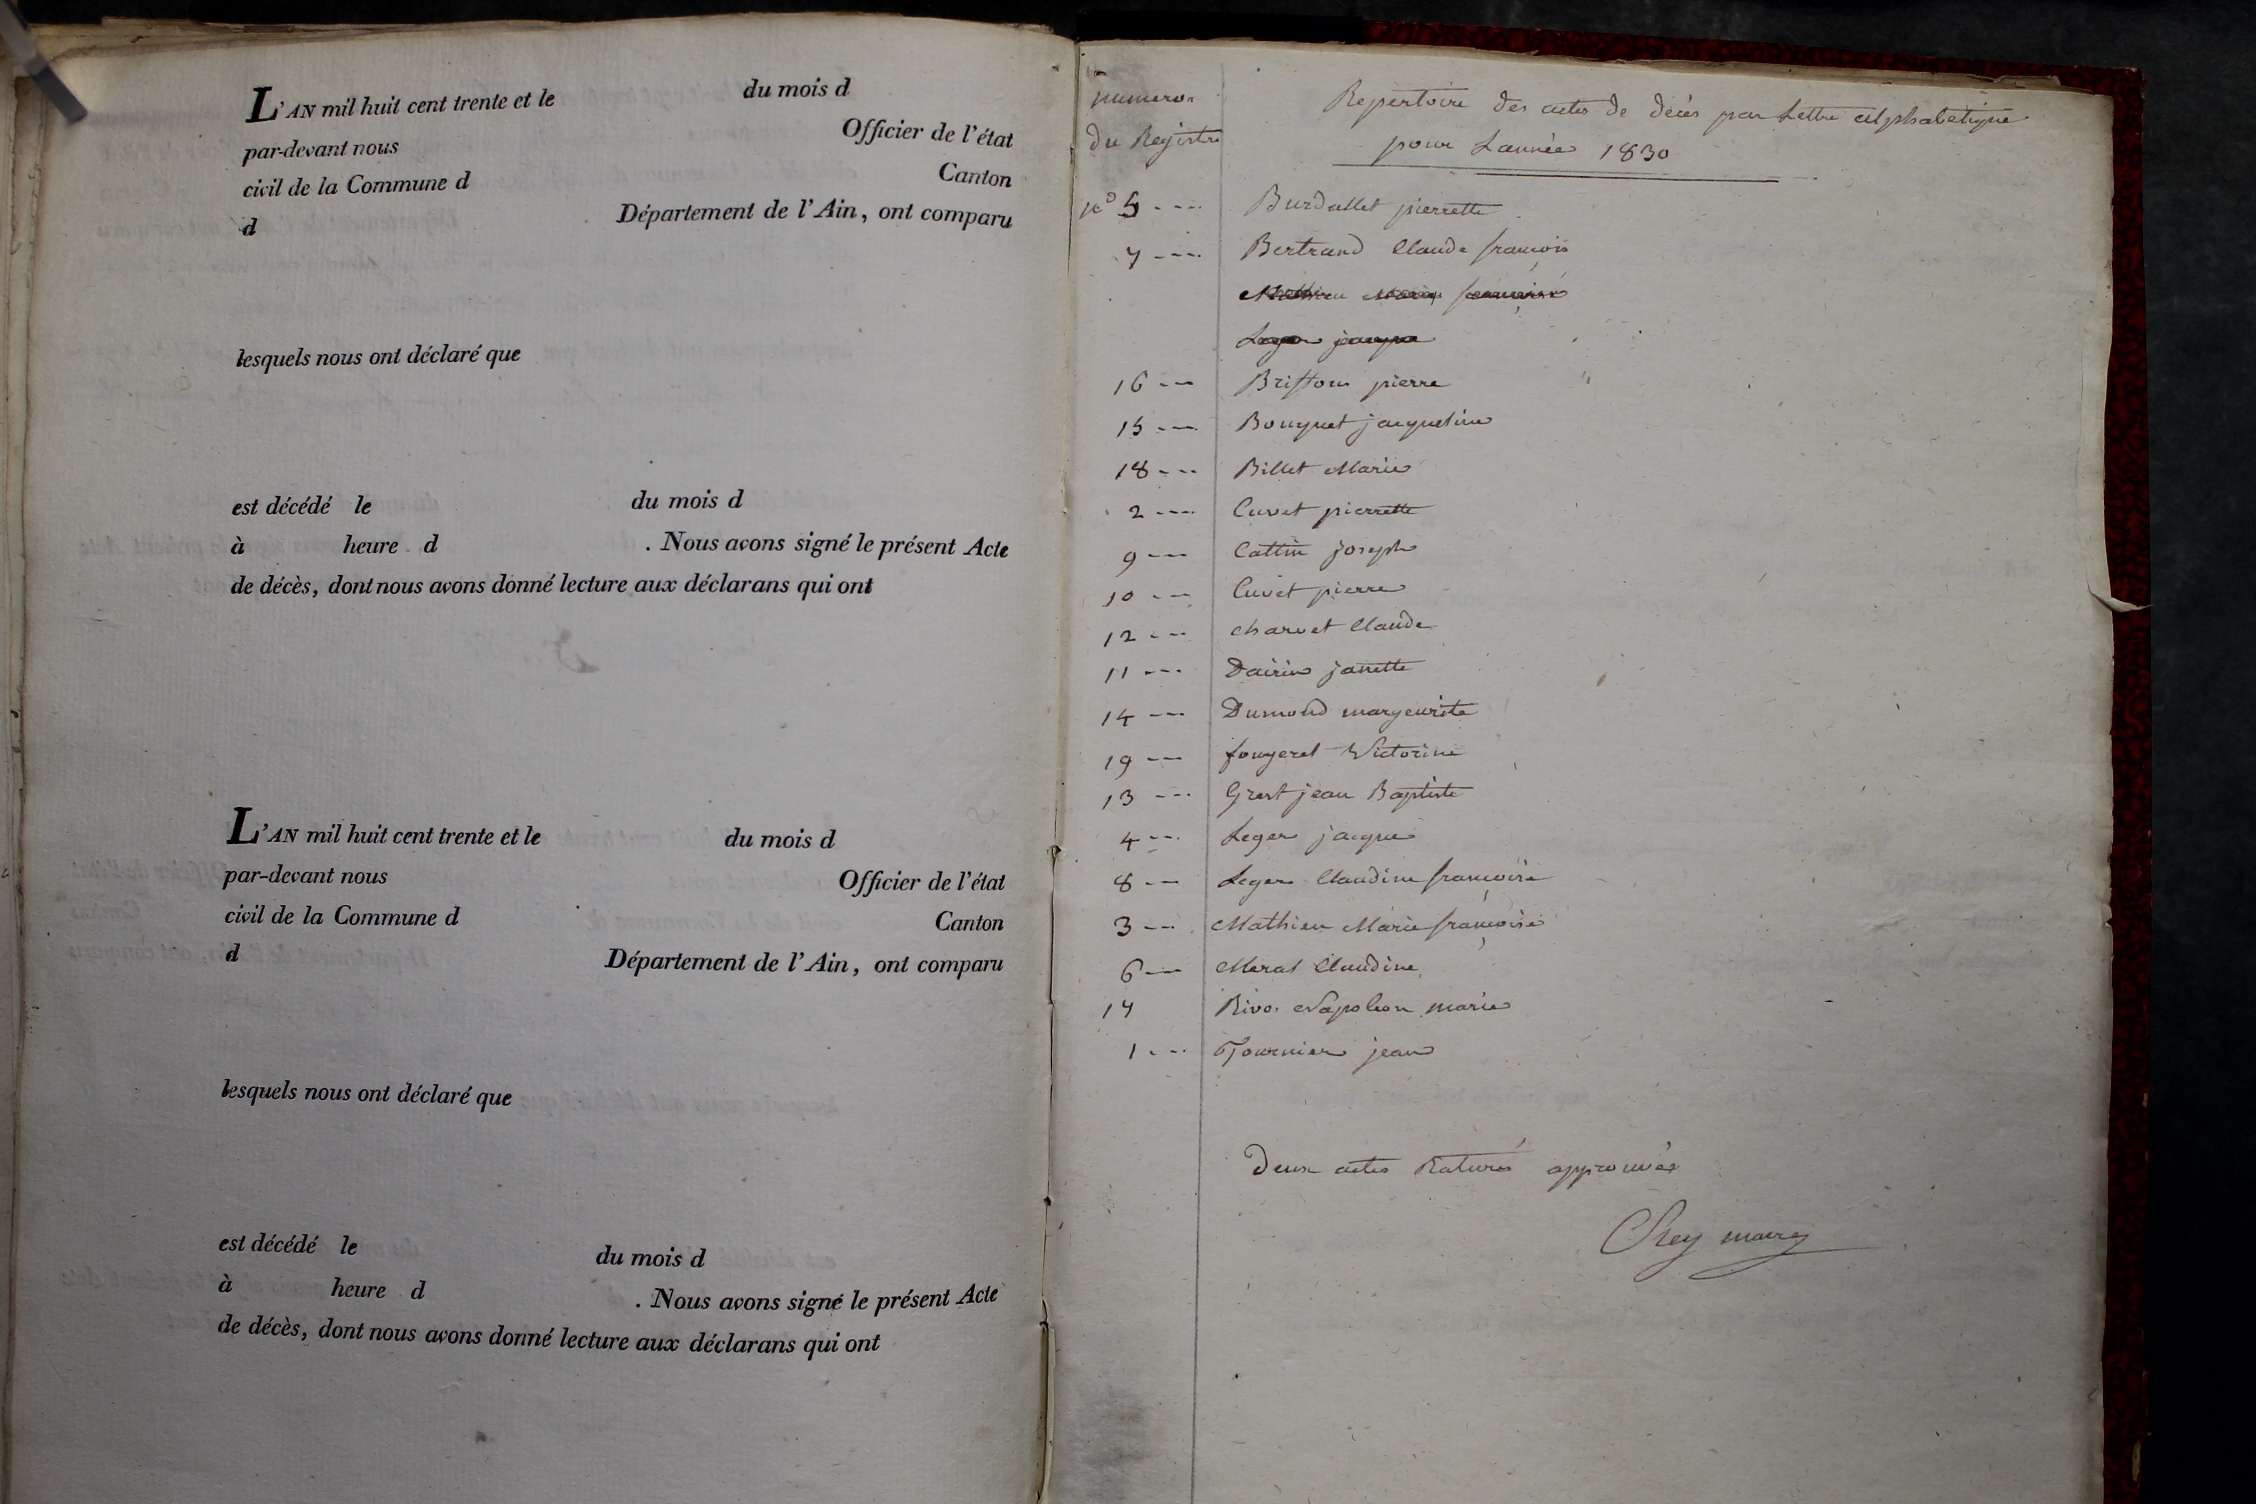 L'AN mil huit cent trente et le du mois d
par-devant nous Officier de l'état
civil de la Commune d Canton
d Département de l'Ain, ont comparu
lesquels nous ont déclaré que
est décédé le du mois d
à heure d . Nous avons signé le présent Acte
de décès, dont nous avons donné lecture aux déclarans qui ont
L'AN mil huit cent trente et le du mois d
par-devant nous Officier de l'état
civil de la Commune d Canton
d Département de l'Ain, ont comparu
lesquels nous ont déclaré que
est décédé le du mois d
à heure d . Nous avons signé le présent Acte
de décès, dont nous avons donné lecture aux déclarans qui ont
numeros
du Registre
Repertoire des actes de décès par Lettre alphabetique
pour Lannée 1830
no 5 --- Burdallet pierrette
7 --- Bertrand Claude françois
Mathieu Marie françoise
Leger jacque
16 --- Brisson pierre
15 --- Bouquet jacqueline
18 --- Billet Marie
2 --- Cuvet pierrette
9 --- Cattin joseph
10 --- Cuvet pierre
12 --- charvet Claude
11 --- Dairin janette
14 --- Dumond margeurite
19 --- fougeret Victorine
13 --- jean Baptiste
4 --- Leger jacque
8 --- Leger Claudine françoise
3 --- Mathieu Marie françoise
6 --- Merat Claudine
17 Napoleon marie
1 --- Tournier jean
Deux actes Raturés approuvés
Rey maire